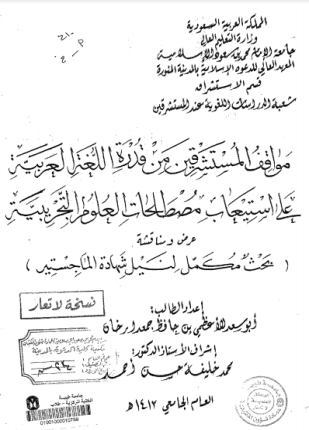 المملكة العربية السعودية
وزارة التعليم العالي
جامعة الإمام محمد بن سعود الإسلامية
المعهد العالي للدعوة الإسلامية بالمدينة المنورة
قسم الاستشراق
شعبة الدراسات اللغوية عند المستشرقين
مواقف المستشرقين من قدرة اللغة العربية
على استيعاب مصطلحات العلوم التجريبية
عرض ومناقشة
( بحث مكمل لنيل شهادة الماجستير )
نسخة لا تعار
إعداد الطالب:
أبو سعد الأعظمي بن حافظ جمعدار خان
إشراف الأستاذ الدكتور:
محمد خليفة حسن أحمد
العام الجامعي ١٤١٢هـ
جامعة طيبة